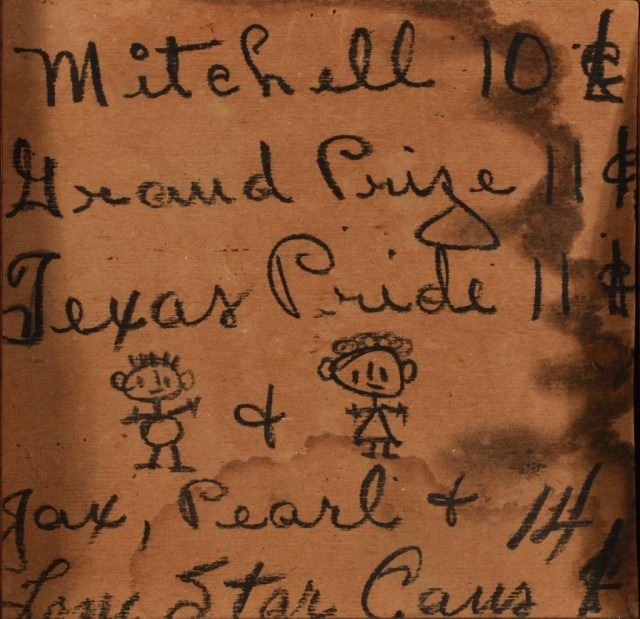 Mitchell 10 ¢
Grand Prize 11 ¢
Texas Pride 11 ¢
&
Jax, Pearl & 14
Lone Star Cans ¢